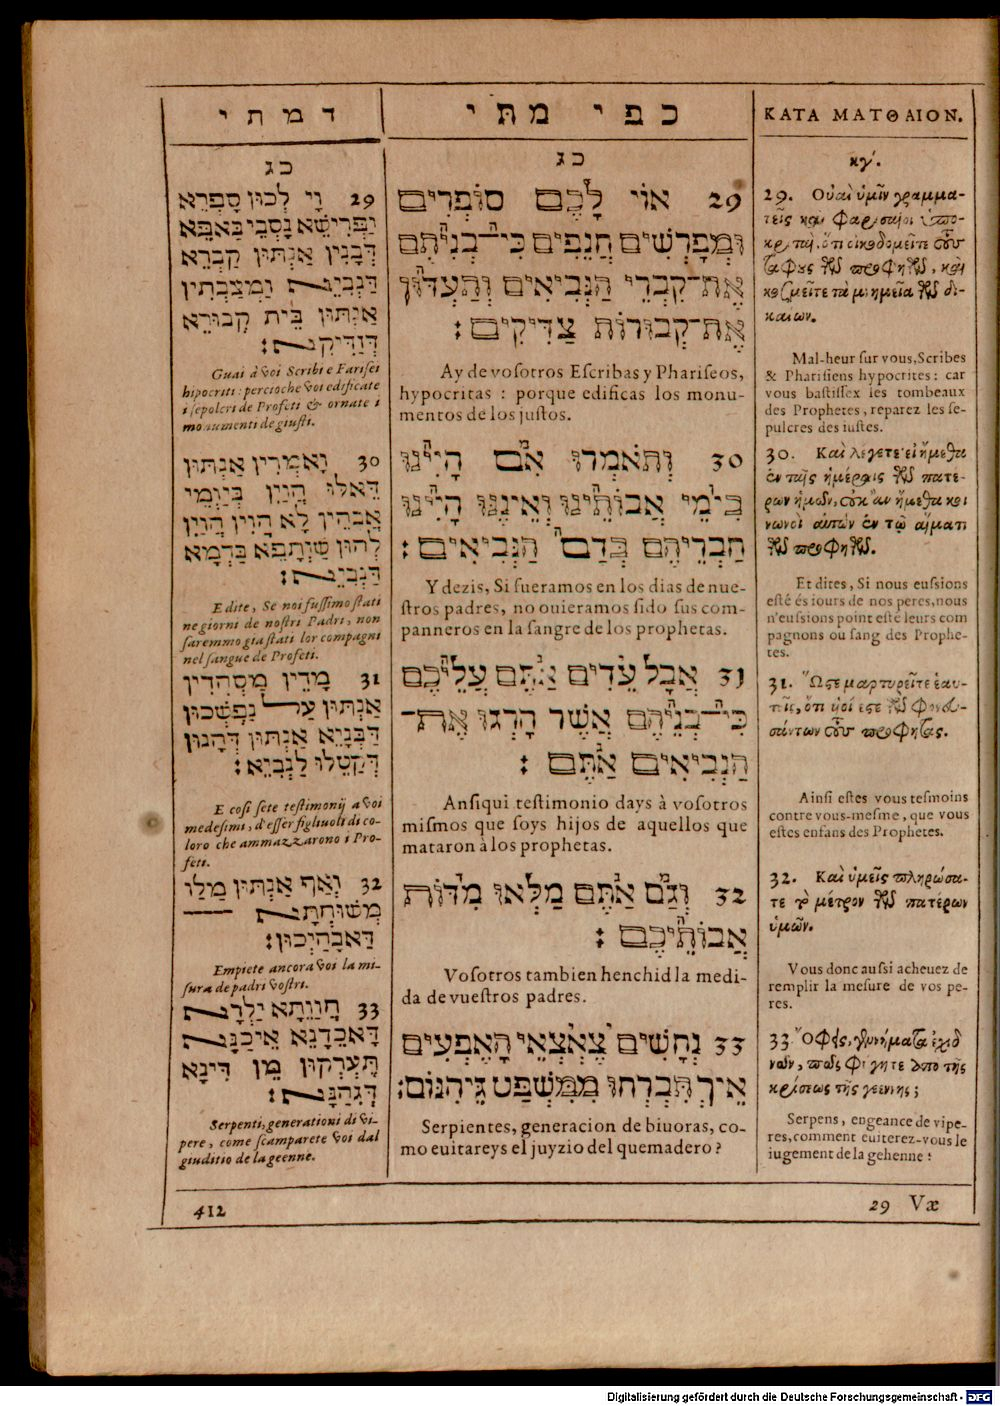 דמתי
כג
29 וָי לְכוּן סָפְרֵא
וַפְרִישֵׁא נָסְבֵי בַּאפֵּא
דְּבָנִין אַנְתּוּן קַבְרֵא
דַּנְבִיֵא וַמְצַבְּתִין
אַנְתּוּן בֵּית קְבוּרֵא
דְּזַדִּיקֵא׃
Guai à voi Scribi e Farisei
hipocriti: percioche voi edificate
i sepolcri de Profeti & ornate i
monumenti de giusti.
30 וָאמְרִין אַנְתּוּן
דֵּאלּוּ הֲוַיְן בְּיַוְמֵי
אֲבָהַין לָא הֲוַין הֲוַיְן
לְהוּן שַׁוְתָפֵא בַּדְמָא
דַּנְבִיֵא׃
E dite, Se noi fussimo stati
ne giorni de nostri Padri, non
saremmo gia stati lor compagni
nel sangue de Profeti.
31 מָדֵין מַסְהְדִין
אַנְתּוּן עַל נַפְשְׁכוּן
דַּבְנַיָא אַנְתּוּן דְּהָנוּן
דְּקַטֵלוּ לַנְבִיֵא׃
E cosi sete testimonij a voi
medesimi, d'esser figliuoli di co-
loro che ammazzarono i Pro-
feti.
32 וְאַף אַנְתּוּן מַלּוּ
מְשׁוּחְתָא
דַּאבָהַיְכוּן׃
Empiete ancora voi la mi-
sura de padri vostri.
33 חֲוַוֵתָא יַלְדָא
דָּאכֵדְנֵא אַיכַנָּא
תֵּעְרְקוּן מֵן דִּינָא
דְּגִהַנָּא׃
Serpenti, generationi di vi-
pere, come scamparete voi dal
giuditio de la geenne.
412
כפי מתי
כג
29 אוֹי לָכֶם סוֹפְרִים
וּמְפָרְשִׁים חֲנֵפִים כִּי־בְנִיתֶם
אֶת־קִבְרֵי הַנְּבִיאִים וְתַעְדּוּן
אֶת־קְבוּרוֹת צַדִּיקִים׃
Ay de vosotros Escribas y Phariseos,
hypocritas : porque edificas los monu-
mentos de los justos.
30 וְתֹאמְרוּ אִם הָיִינוּ
בִּימֵי אֲבוֹתֵינוּ וְאֵינֶנּוּ הָיִינוּ
חַבְרֵיהֶם בְּדַם הַנְּבִיאִים׃
Y dezis, Si fueramos en los dias de nue-
stros padres, no ouieramos sido sus com-
panneros en la sangre de los prophetas.
31 אֲבָל עֵדִים אַתֶּם עֲלֵיכֶם
כִּי־בְנֵיהֶם אֲשֶׁר הָרְגוּ אֶת־
הַנְּבִיאִים אַתֶּם׃
Ansiqui testimonio days à vosotros
mismos que soys hijos de aquellos que
mataron à los prophetas.
32 וְגַם אַתֶּם מַלְאוּ מִדּוֹת
אֲבוֹתֵיכֶם׃
Vosotros tambien henchid la medi-
da de vuestros padres.
33 נְחָשִׁים צֶאֱצָאֵי הָאֶפְעִים
אֵיךְ תִּבְרְחוּ מִמִּשְׁפַּט גֵּיהִנּוֹם׃
Serpientes, generacion de biuoras, co-
mo euitareys el juyzio del quemadero?
ΚΑΤΑ ΜΑΤΘΑΙΟΝ.
κγʹ.
29. Οὐαὶ ὑμῖν γραμμα-
τεῖς καὶ Φαρισαῖοι ὑπο-
κριταὶ, ὅτι οἰκοδομεῖτε τοὺς
τάφους τῶν προφητῶν, καὶ
κοσμεῖτε τὰ μνημεῖα τῶν δι-
καίων.
Mal-heur sur vous, Scribes
& Pharisiens hypocrites : car
vous bastissez les tombeaux
des Prophetes, reparez les se-
pulcres des iustes.
30. Καὶ λέγετε· εἰ ἤμεθα
ἐν ταῖς ἡμέραις τῶν πατέ-
ρων ἡμῶν, οὐκ ἂν ἤμεθα κοι
νωνοὶ αὐτῶν ἐν τῷ αἵματι
τῶν προφητῶν.
Et dites, Si nous eussions
esté és iours de nos peres, nous
n'eussions point esté leurs com
pagnons ou sang des Prophe-
tes.
31. Ὥστε μαρτυρεῖτε ἑαυ-
τοῖς, ὅτι υἱοί ἐστε τῶν φονευ-
σάντων τοὺς προφήτας.
Ainsi estes vous tesmoins
contre vous-mesme, que vous
estes enfans des Prophetes.
32. Καὶ ὑμεῖς πληρώσα-
τε τὸ μέτρον τῶν πατέρων
ὑμῶν.
Vous donc aussi acheuez de
remplir la mesure de vos pe-
res.
33 Ὄφεις, γεννήματα ἐχιδ
νῶν, πῶς φύγητε ἀπὸ τῆς
κρίσεως τῆς γεέννης;
Serpens, engeance de vipe-
res, comment euiterez-vous le
iugement de la gehenne ?
29 Væ
Digitalisierung gefördert durch die Deutsche Forschungsgemeinschaft - DFG